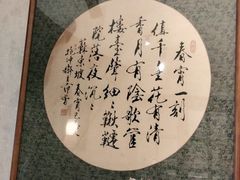 春宵一刻
值千金花有清
香月有陰歌管
樓臺聲細細鞦韆
院落夜沉沉
蘇東坡春宵